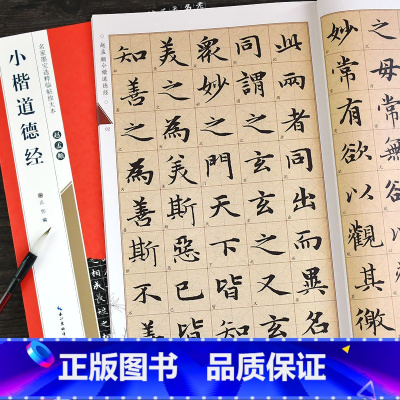 之母常無欲以觀其
妙常有欲以觀其徼
此兩者同出而異名
同謂之玄玄之又玄
眾妙之門天下皆知
美之為美斯惡已皆
知善之為善斯不善
赵孟頫小楷道德经
02
名家墨宝选粹临帖放大本
小楷道德经
赵孟頫